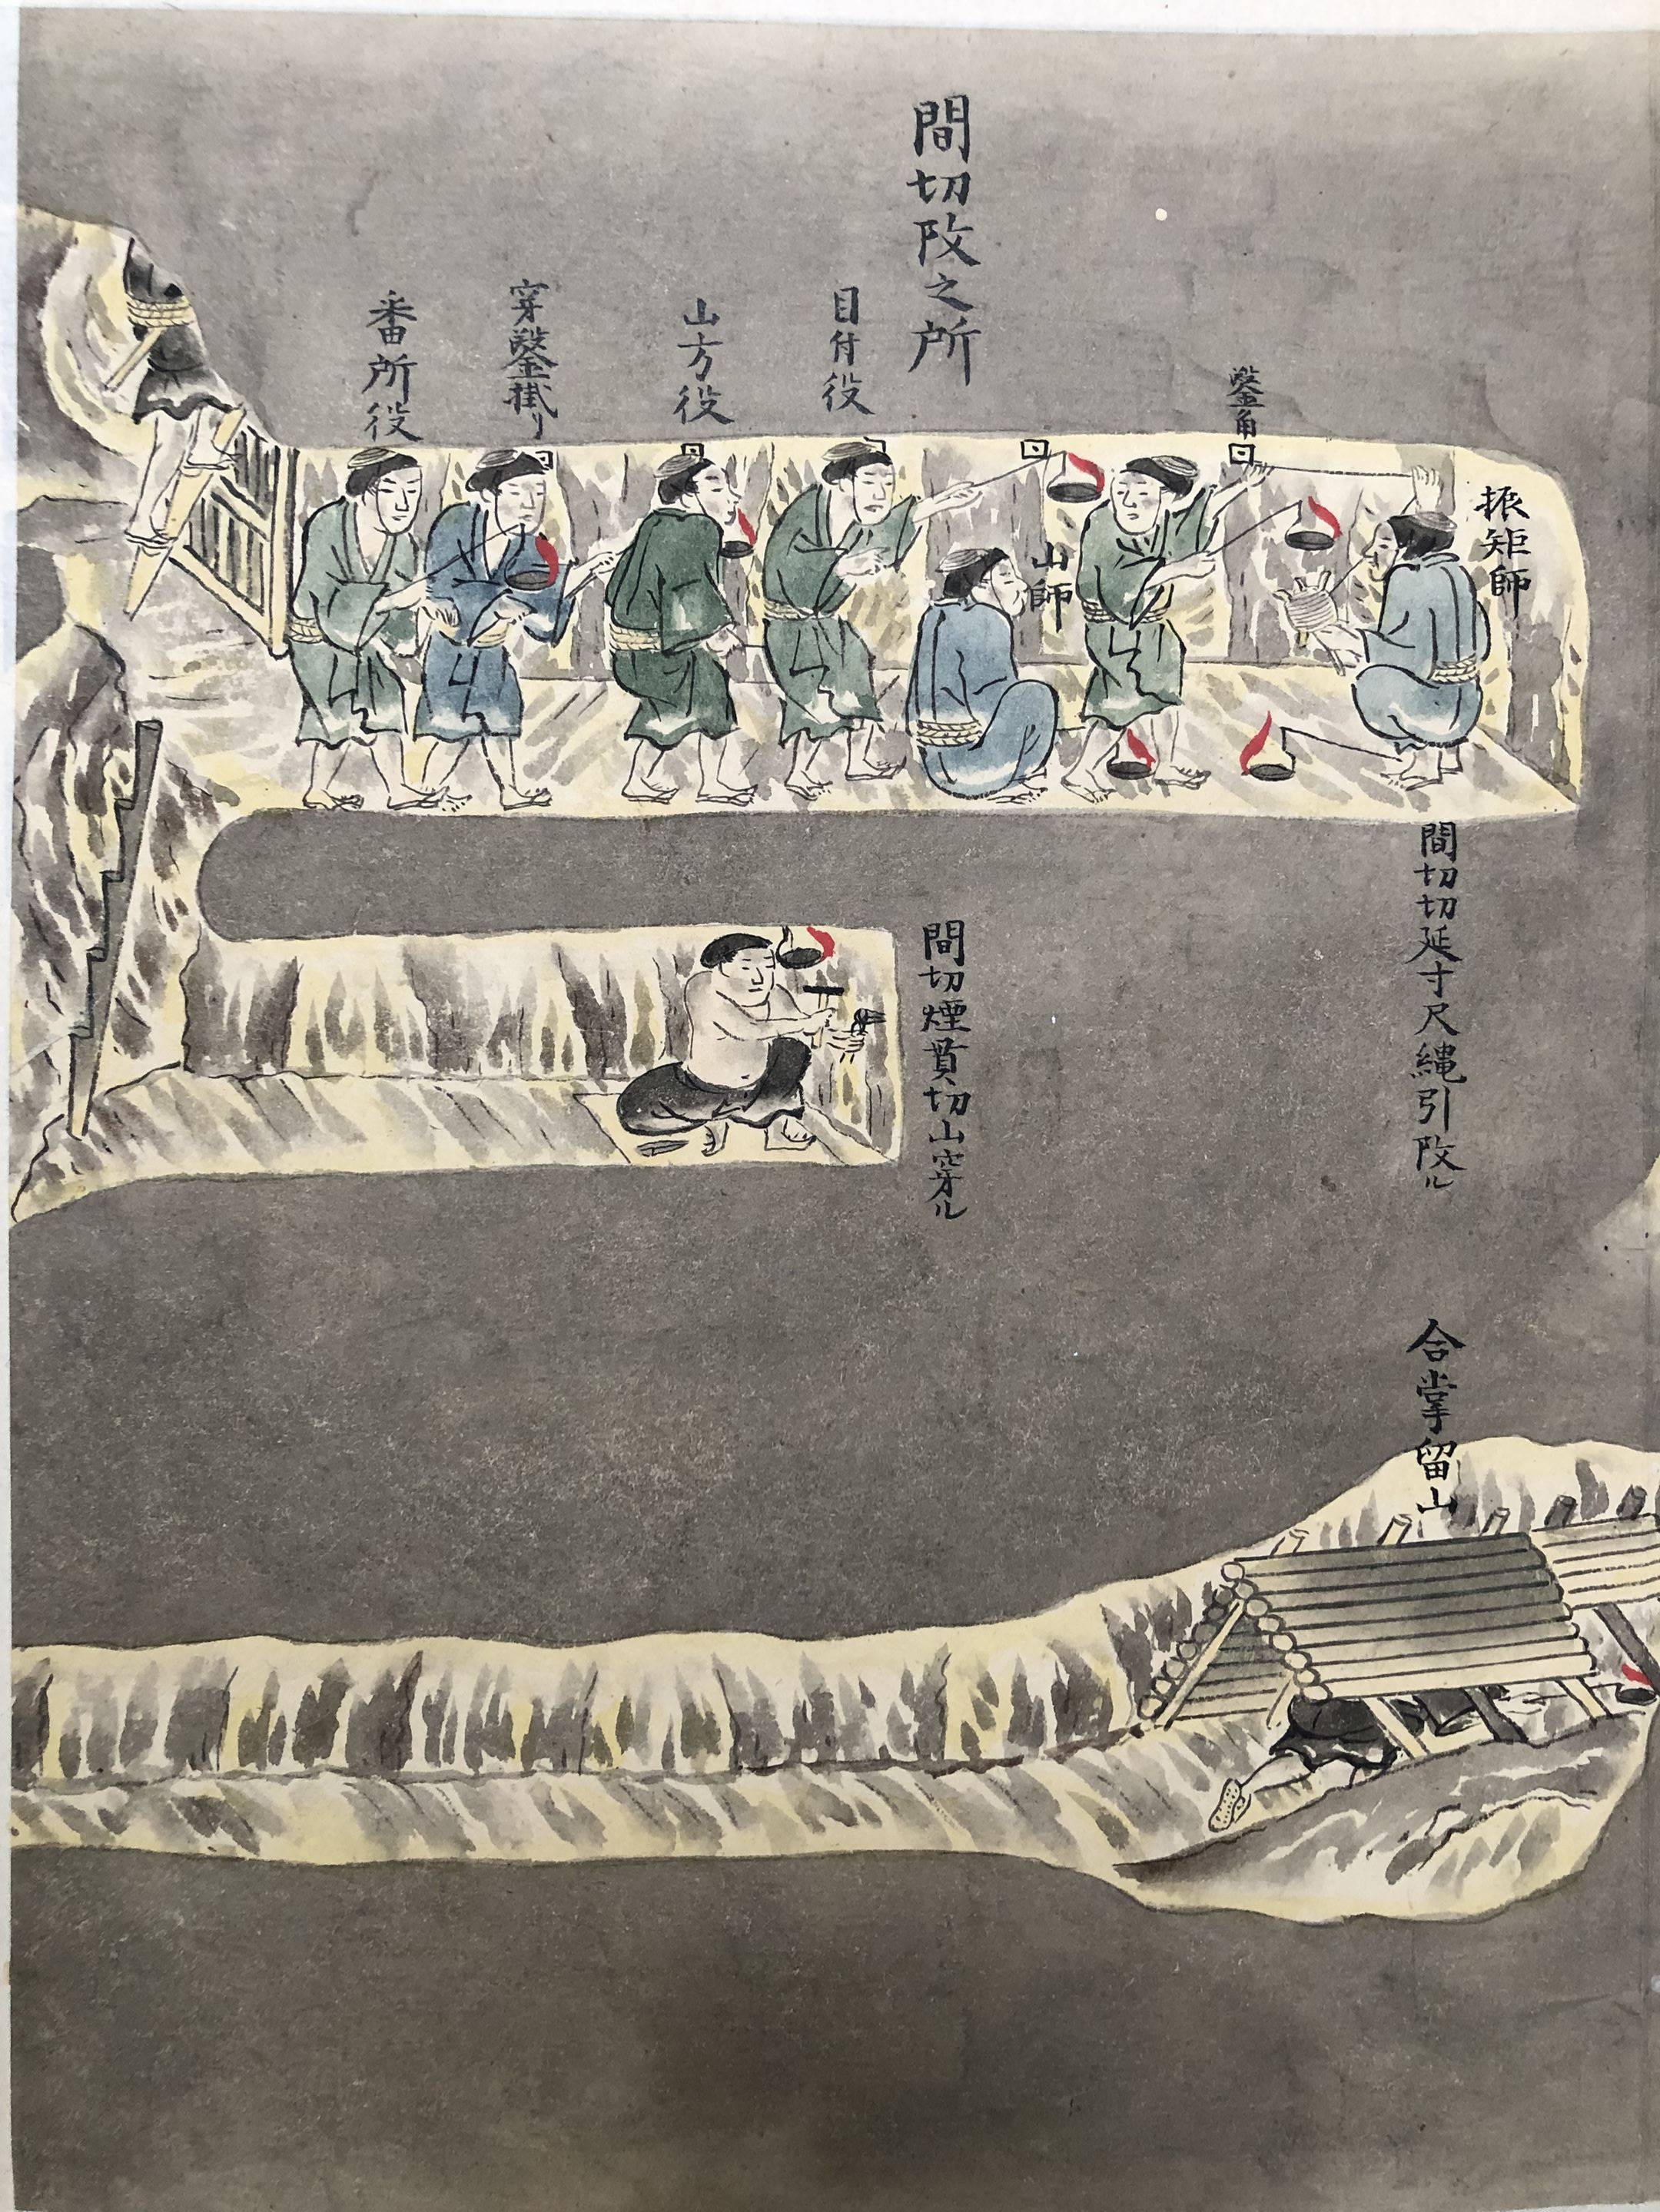 間切改之所
振矩師
鑿角
山師
目付役
山方役
穿鑿掛り
番所役
間切切延寸尺縄引改ル
間切煙貫切山穿ル
合掌留山